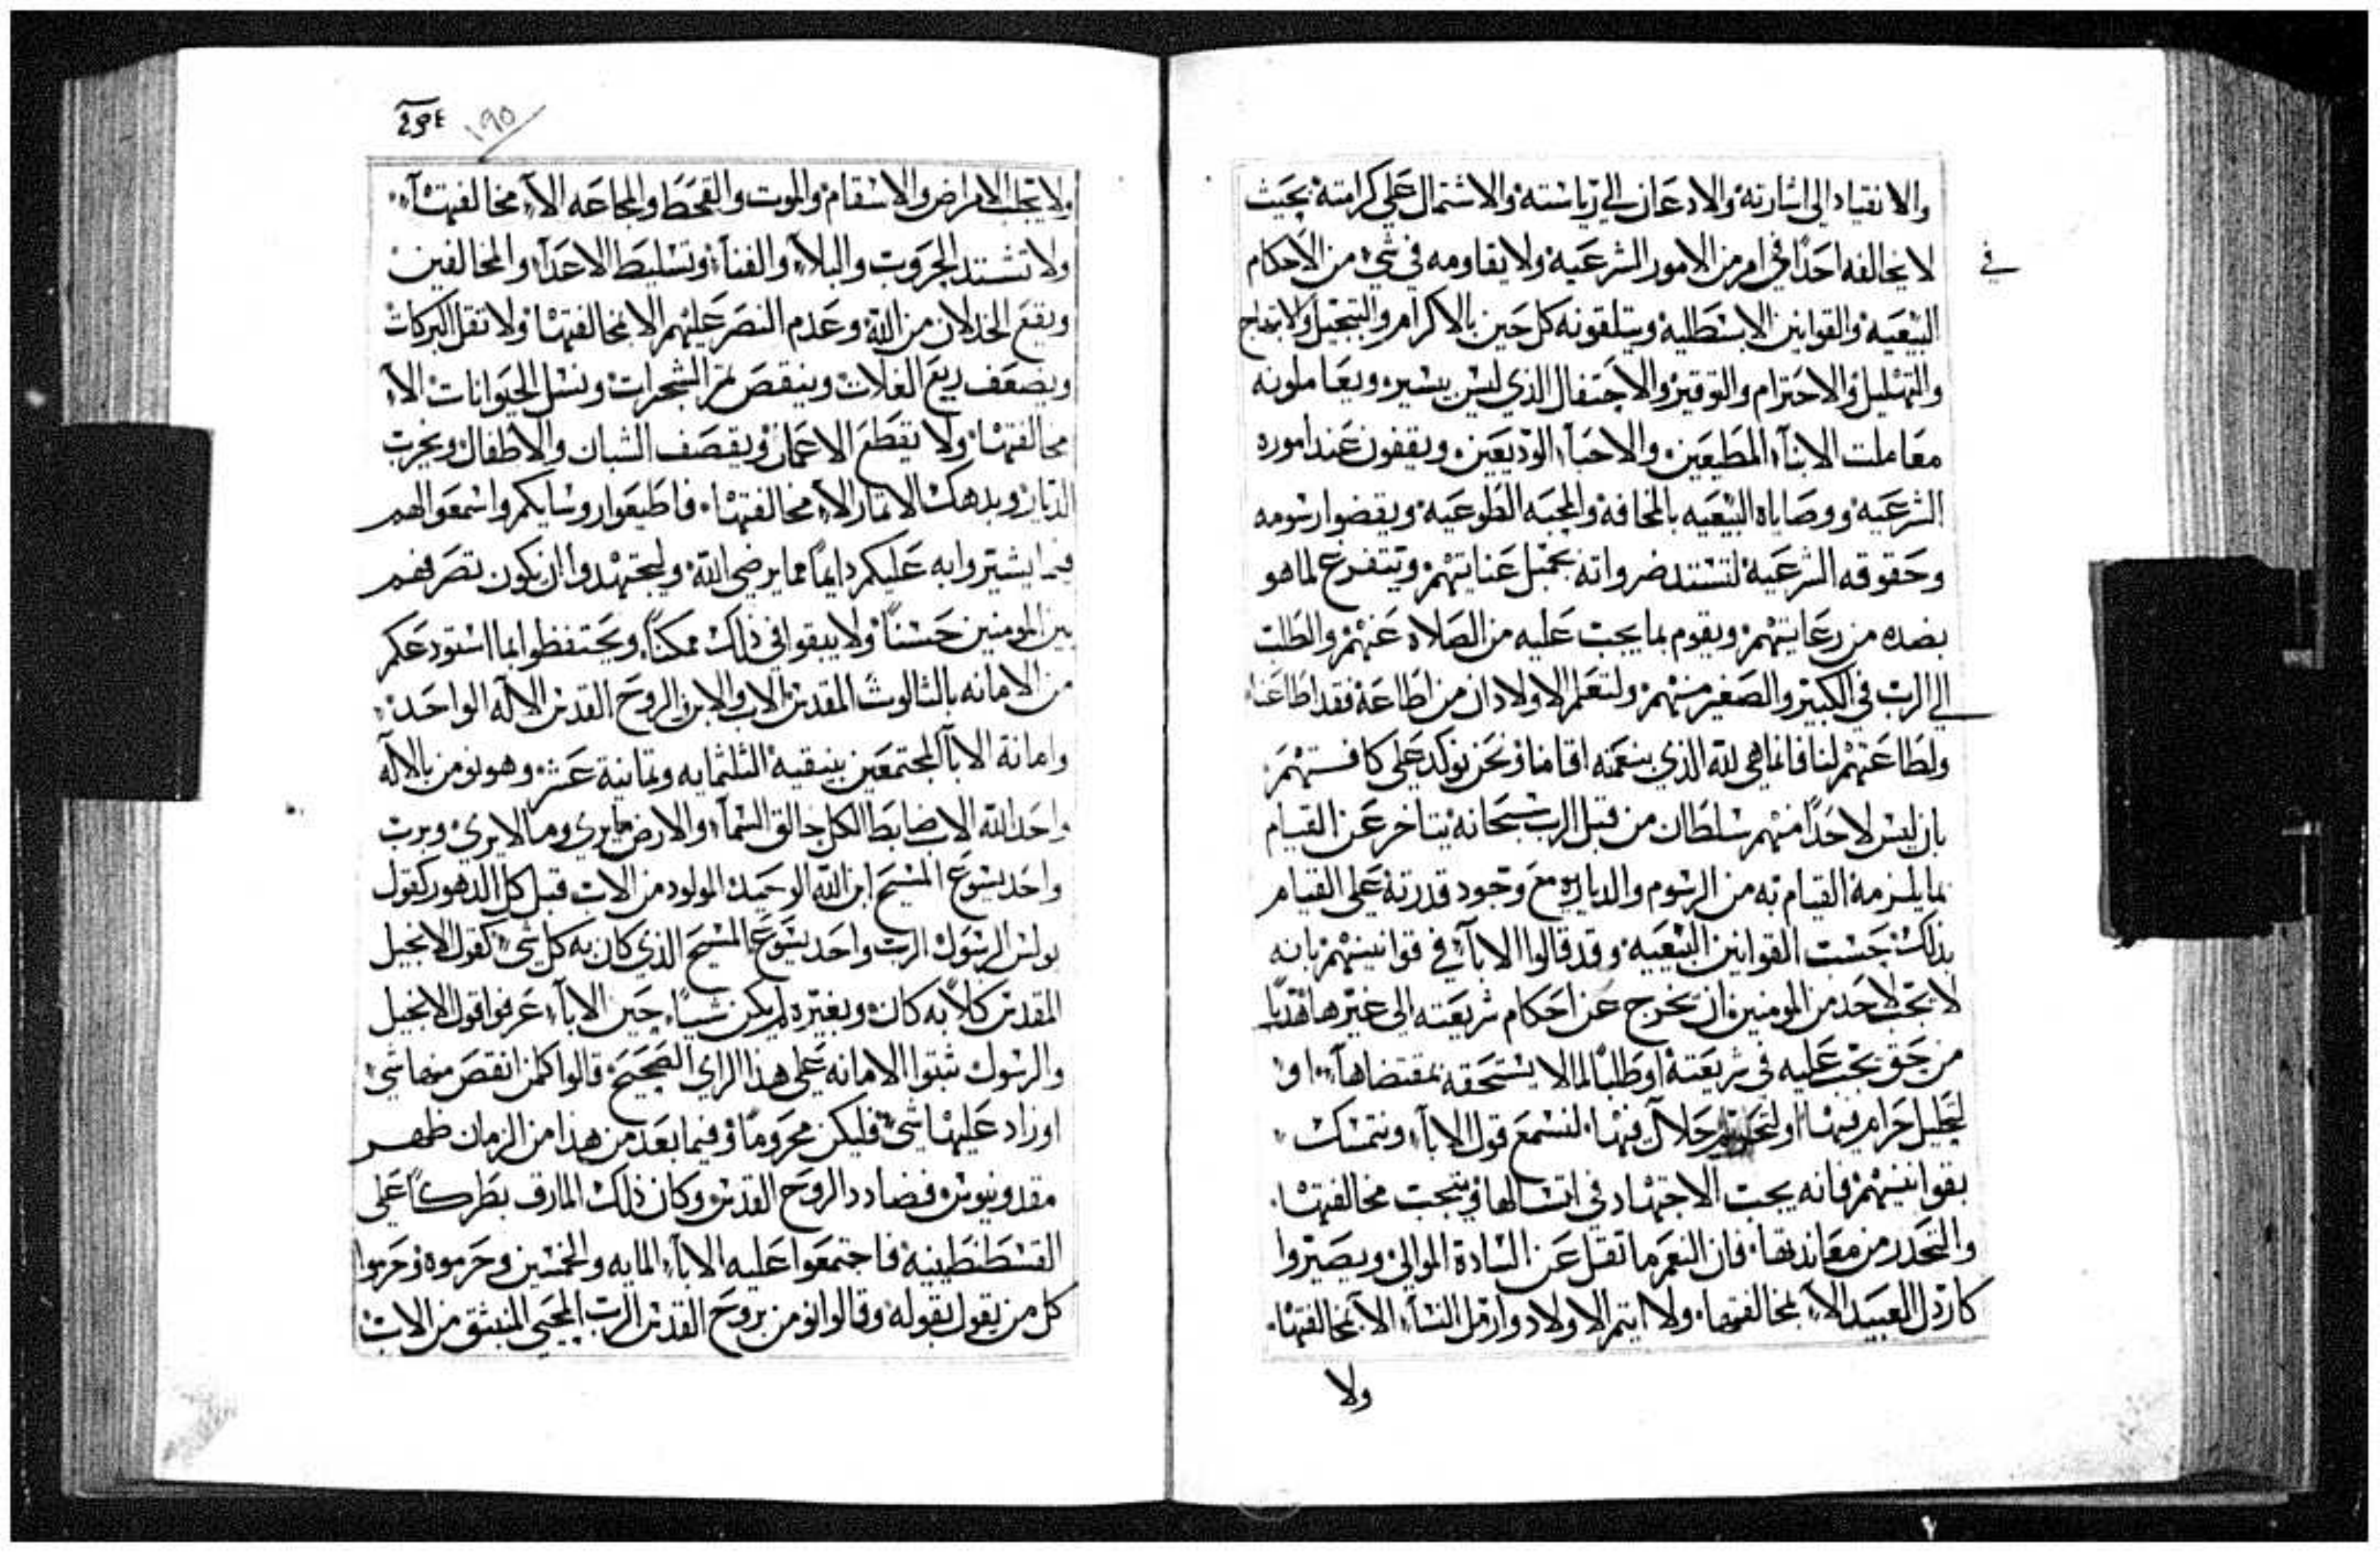 والانقياد الى اشارته والادعان الي رياسته والاشتمال علي كرامته بحيث
لا يخالفه احدًا في امر من الامور الشرعيه ولا يقاومه في شيء من الاحكام
في
البيعيه والقوانين الابسطليه ويتلقونه كل حين بالاكرام والتبجيل والابتهاج
والتهليل والاحترام والتوقير والاحتفال الذي ليس بيسير ويعاملونه
معاملت الابناء المطيعين والاحباء الوديعين ويقفون عند اموره
الشرعيه ووصاياه البيعيه بالمخافه والمحبه الطوعيه ويقضوا رسومه
وحقوقه الشرعيه لتستد ضرواته بجميل عنايتهم ويتفرع لما هو
بصده من رعايتهم ويقوم بما يجب عليه من الصلاه عنهم والطلب
الي الرب في الكبير والصغير منهم ولتعلم الاولاد ان من اطاعه فقد اطاعنا
ولطاعتهم لنا فانما هي لله الذي بنعمته اقامنا ونحن نوكد علي كافستهم
بان ليس لاحدًا منهم سلطان من قبل الرب سبحانه يتاخر عن القيام
بما يلزمه القيام به من الرسوم والدياريه مع وجود قدرته علي القيام
بذلك حسب القوانين البيعيه وقد قالوا الاباء في قوانينهم بانه
لا يجب لاحد من المومنين ان يخرج عن احكام شريعته الى غيرها هدبًا
من حق يجب عليه في شريعته او طلبًا لما لا يستحقه بمقتضاها او
لتحليل حرام فيها او لتحريم حلال فيها لنسمع قول الاباء ونتمسك
بقوانينهم فانه يجب الاجتهاد في اتسالها ويتجب مخالفتها
والتحدر من معاندتها فان النعم ما تقل عن السادة الموالي ويصيروا
كاردل العبيد الاء بمخالفتها ولا ايتم الاولاد وارمل النساء الا بمخالفتها
ولا
٢٩٤
١٩٥
ولا يجلب الامراض والاسقام والموت والقحط والمجاعه الاء مخالفتها
ولا تشتد الجروب والبلاء والفناء وتسليط الاعداء والمخالفين
ويقع الخدلان من الله وعدم النصر عليهم الا بمخالفتها ولا تقل البركات
ويضعف ريع الغلات وينقص ثمر الشجرات ونسل الحيوانات الاء
مخالفتها ولا يقطع الاعمار ويقصف الشبان والاطفال ويخرب
الديار ويدهك الاتار الاء مخالفتها فاطيعوا روسايكم واسمعوا لهم
فيما يشيروا به عليكم دايمًا مما يرضي الله وليجتهدوا ان يكون تصرفهم
بين المومنين حسنًا ولا يبقوا في ذلك ممكنًا ويحتفظوا بما استودعكم
من الامانه بالتالوث المقدس الاب والابن والروح القدس الاله الواحد
وامانة الاباء المجتمعين بنيقيه الثلثمايه وتمانية عشر وهو نومن بالاله
واحد الله الاب ضابط الكل خالق السماء والارض ما يري وما لا يري وبرب
واحد يسوع المسيح ابن الله الوحيد المولود من الاب قبل كل الدهور كقول
بولس الرسول الرب واحد يسوع المسيح الذي كان به كل شيء كقول الانجيل
المقدس كلًا به كان وبغيره لم يكن شييًا حين الاباء عرفوا قول الانجيل
والرسول تبتوا الامانه علي هذا الراي الصحيح قالوا كلمن انقص منها شيء
او زاد عليها شيء فليكن محرومًا وفيما بعد من هذا من الزمان ظهر
مقدونيوس فضادد الروح القدس وكان ذلك المارق بطركًا علي
القسطنطينيه فاجتمعوا عليه الاباء المايه والخمسين وحرموه وحرموا
كل من يقول بقوله وقالوا نومن بروح القدس الرب المحيي المنبثق من الاب